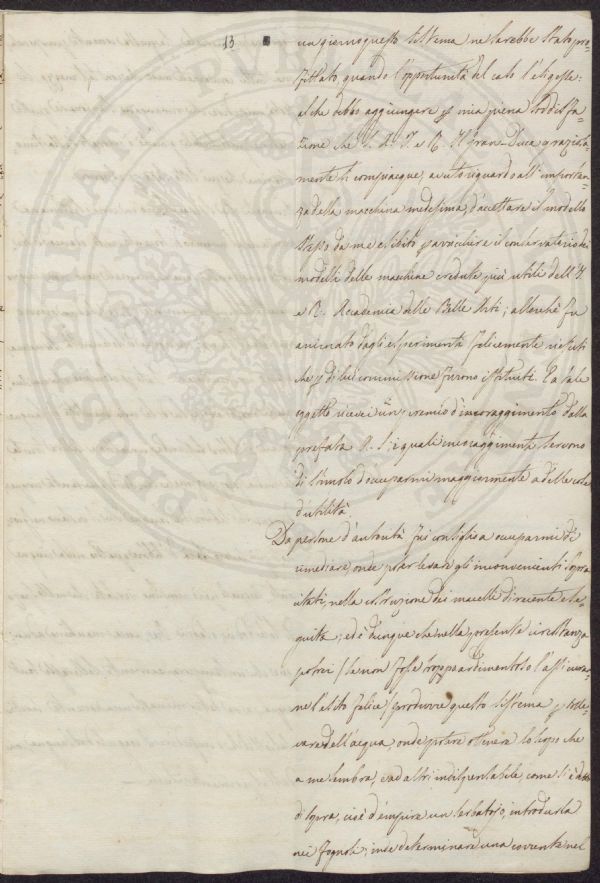 13
un giorno questo sistema ne sarebbe stato pro-
fittato, quando l'opportunità del caso l'esigesse:
al che debbo aggiungere p mia piena soddisfa-
zione che S. A. I. e R. Il Gran-Duca graziosa-
mente si compiacque, avuto riguardo all'importan-
za della macchina medesima, d'accettare il modello
stesso da me esibito p arricchire il conservatorio dei
modelli delle macchine credute più utili dell'I.
e R. Accademia delle Belle Arti; allorchè fu
animato dagli esperimenti felicemente riesciti
che p di lui commissione furono istituiti. Ea tale
oggetto ricevei un premio d'incoraggimento dalla
prefata A. S.: i quali incoraggimenti servono
di stimolo d'occuparmi maggiormente a delle cose
d'utilità.
Da persone d'autorità fui consigliato a occuparmi di
rimediare, onde poter levare gli inconvenienti sopra
citati, nella costruzione dei macelli di recente ese-
guita; ed è dunque che nella presente circostanza
potrei (se non fosse troppo ardimentoso l'assicurar-
ne l'esito felice) produrre questo sistema p solle-
vare dell'acqua, onde potere ottenere lo scopo che
a me sembra, ead altri indispensabile, come si è detto
di sopra, cioè d'empire un serbatojo, introdurla
nei fognoli; in se determinare una corrente nel